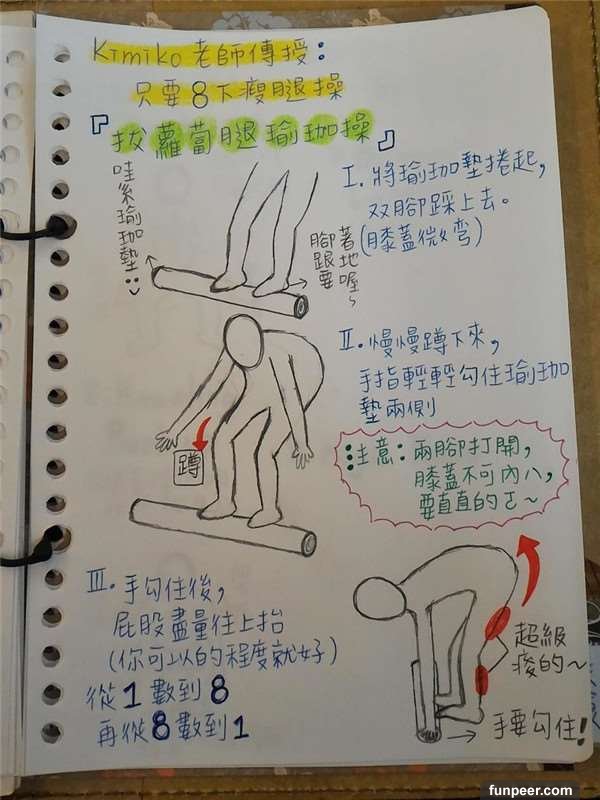 Kimiko老師傳授：
只要8下瘦腿操
『拔蘿蔔腿瑜珈操』
哇系瑜珈墊
腳跟要
著地喔~
I. 將瑜珈墊捲起，
双腳踩上去。
(膝蓋微弯)
II. 慢慢蹲下來，
手指輕輕勾住瑜珈
墊兩側
蹲
注意：兩腳打開，
膝蓋不可內八，
要直直的ㄛ~
III. 手勾住後，
屁股盡量往上抬
(你可以的程度就好)
從1數到8
再從8數到1
超級
痠的~
手要勾住！
funpeer.com